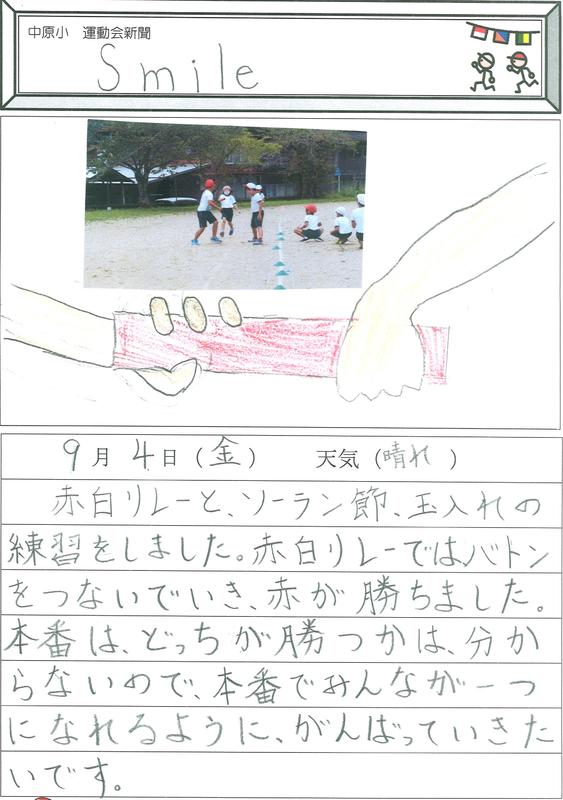 中原小 運動会新聞
Smile
9月4日(金) 天気(晴れ)
赤白リレーと、ソーラン節、玉入れの
練習をしました。赤白リレーでは、バトン
をつないでいき、赤が勝ちました。
本番は、どっちが勝つかは、分か
らないので、本番でみんなが一つ
になれるように、がんばっていきた
いです。